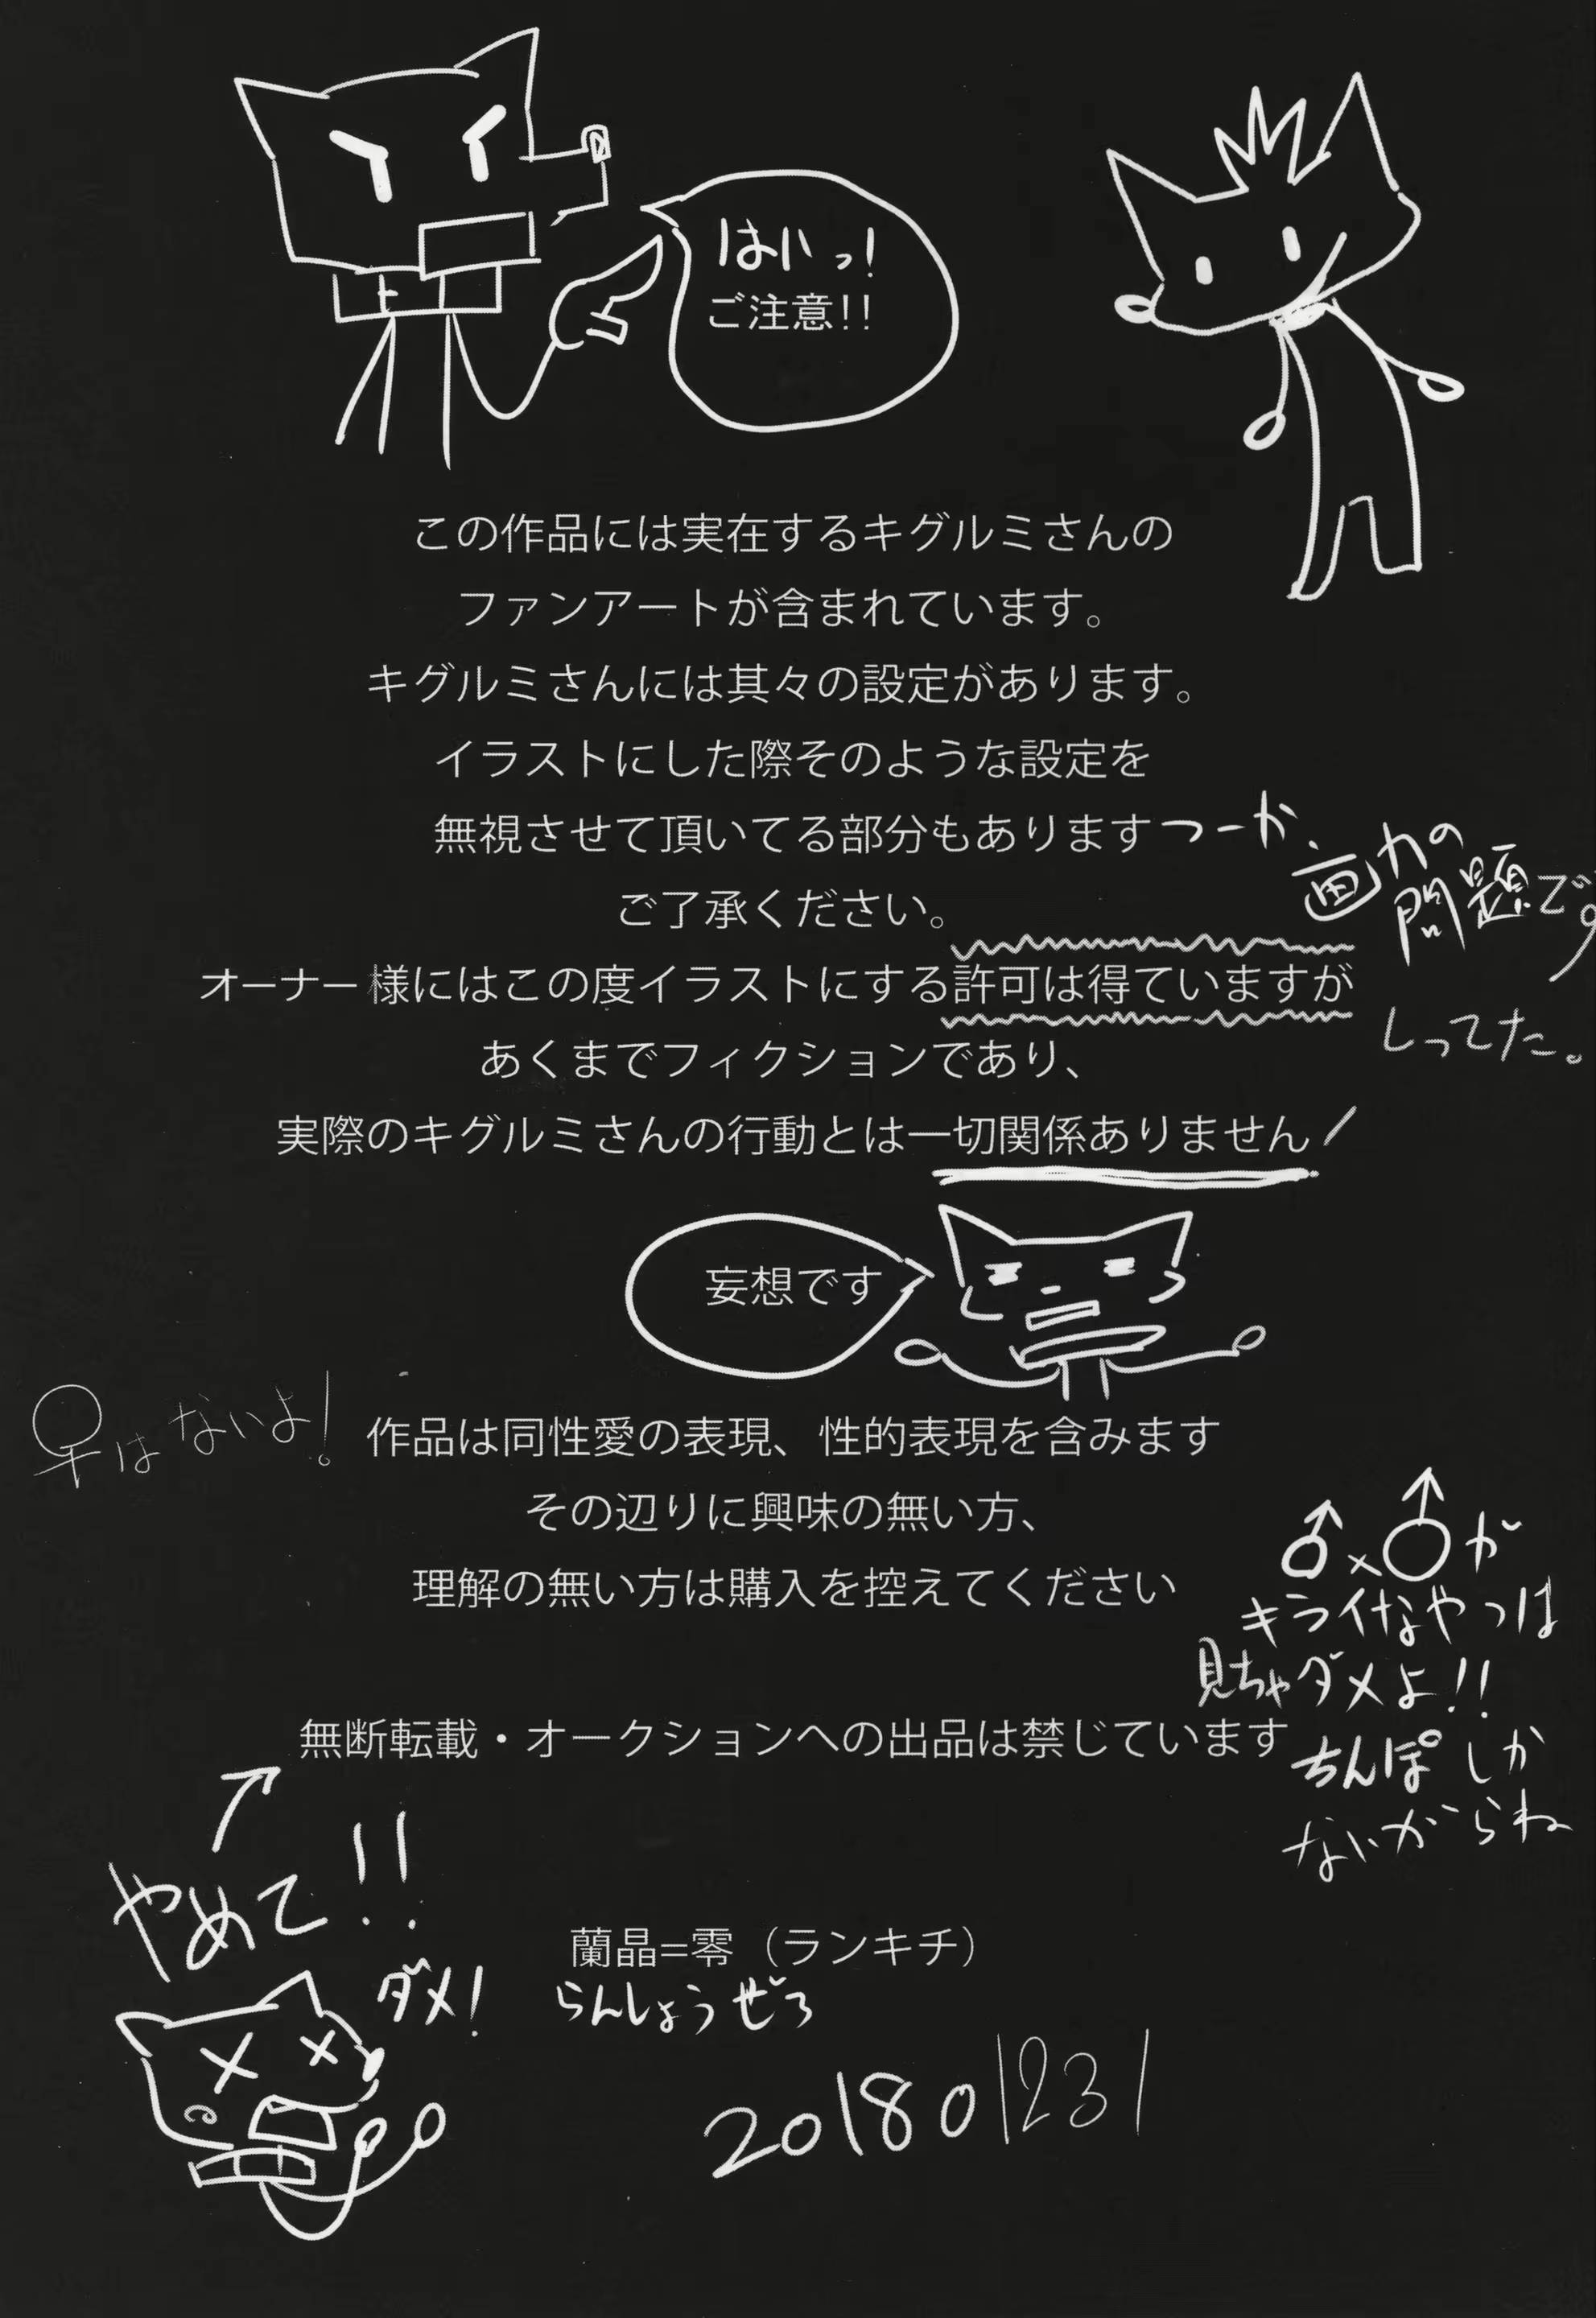 はいっ!
ご注意!!
この作品には実在するキグルミさんの
ファンアートが含まれています。
キグルミさんには其々の設定があります。
イラストにした際そのような設定を
無視させて頂いてる部分もあります
つーか、
画力の
問題です
ご了承ください。
オーナー様にはこの度イラストにする許可は得ていますが
しってた。
あくまでフィクションであり、
実際のキグルミさんの行動とは一切関係ありません
妄想です
♀はないよ!
作品は同性愛の表現、性的表現を含みます
その辺りに興味の無い方、
理解の無い方は購入を控えてください
♂×♂が
キライなやつは
見ちゃダメよ!!
ちんぽしか
ないからね
無断転載・オークションへの出品は禁じています
やめて!!
ダメ!
蘭晶=零（ランキチ）
らんしょうぜろ
201801231